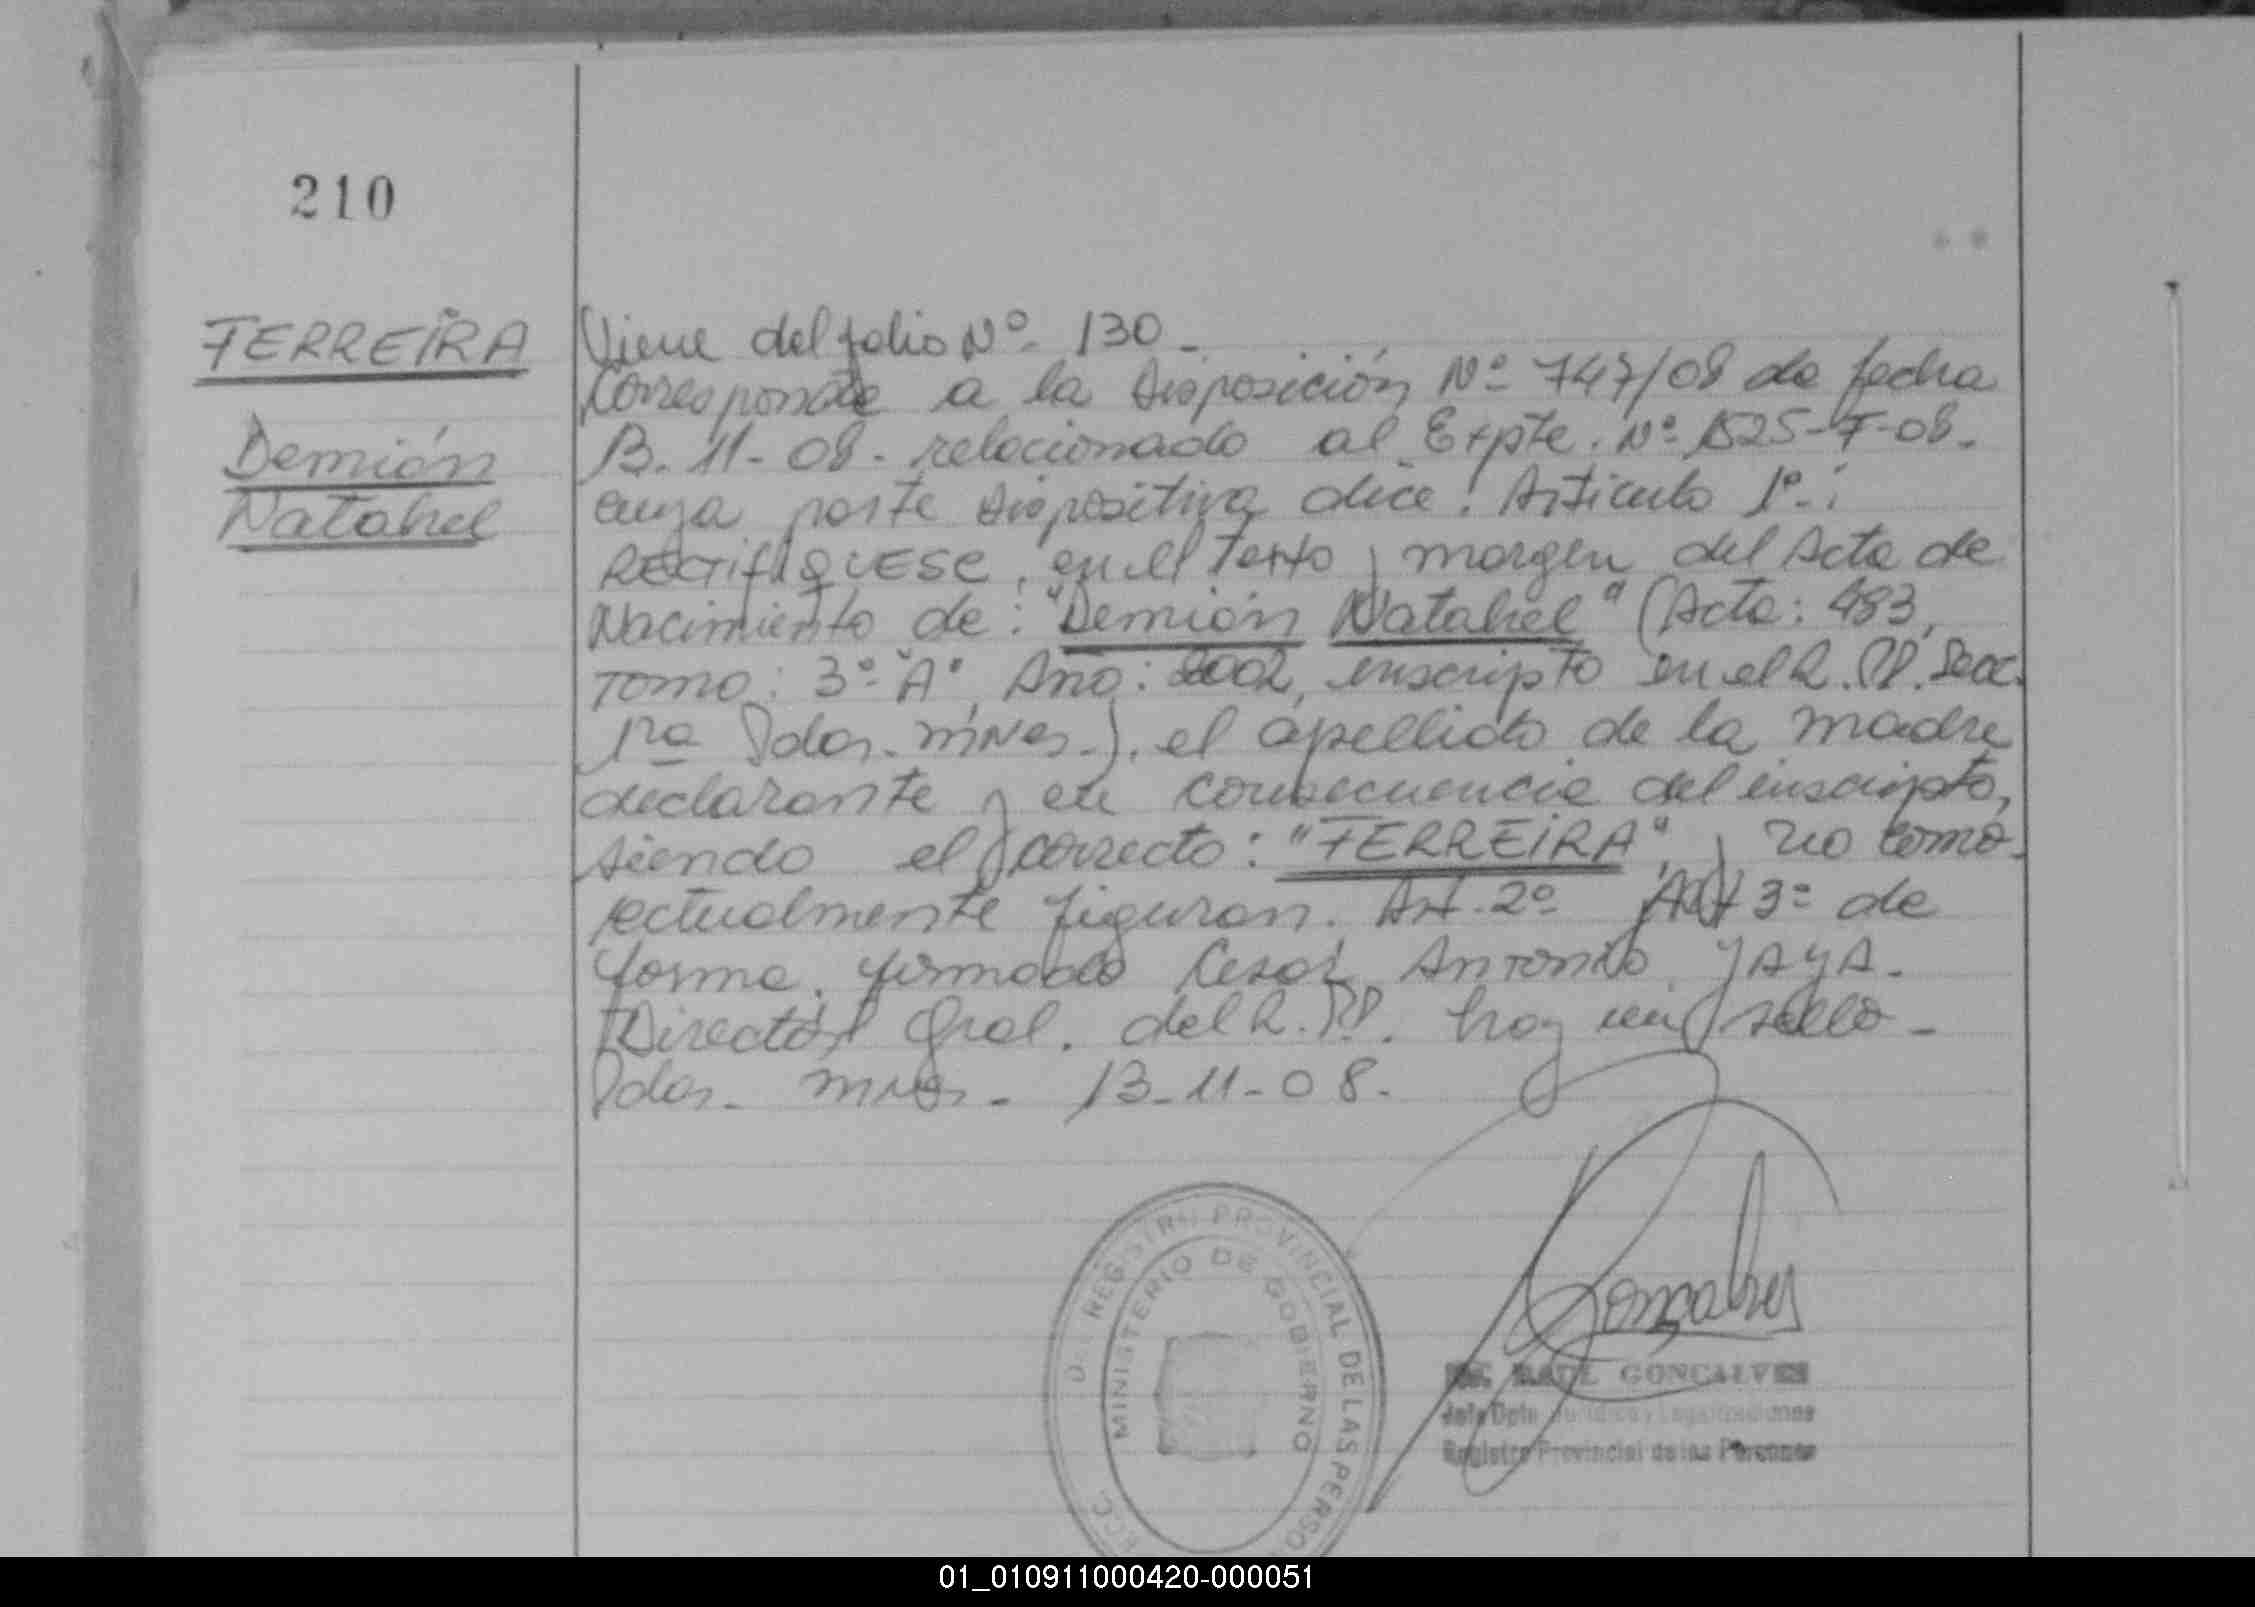 210
FERREIRA
Demión
Natahel
Viene del folio Nº. 130.
Corresponde a la Disposición Nº 747/08 de fecha
13.11-08. relacionado al Expte. Nº 1525-F-08.
cuya parte dispositiva dice: Artículo 1º.:
RECTIFIQUESE, en el texto y margen del Acta de
Nacimiento de: "Demión Natahel" (Acta: 483,
Tomo: 3º "A", Año: 2002, inscripto en el R.P.P. Secc.
1ra Pdas. Mnes.), el apellido de la madre
declarante y en consecuencia del inscripto,
siendo el correcto: "FERREIRA", y no como
actualmente figuran. Art. 2º y Art 3º de
forma. firmado Cesar Antonio YAYA.
Director Gral. del R.P.P. hay un sello.
Pdas. Mnes. 13-11-08.
REGISTRO PROVINCIAL DE LAS PERSO
MINISTERIO DE GOBIERNO
Goncalves
RAUL GONCALVES
Jefe Dpto. Jurídico y Legalizaciones
Registro Provincial de las Personas
01_010911000420-000051